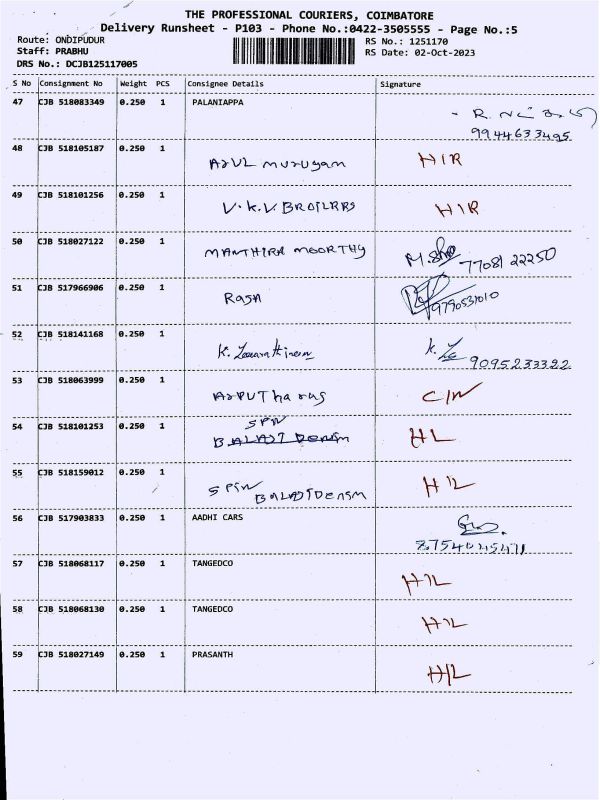 THE PROFESSIONAL COURIERS, COIMBATORE
Delivery Runsheet - P103 - Phone No.:0422-3505555 - Page No.:5
Route: ONDIPUDUR
RS No.: 1251170
Staff: PRABHU
RS Date: 02-Oct-2023
DRS No.: DCJB125117005
S No Consignment No Weight PCS Consignee Details Signature
47 CJB 518083349 0.250 1 PALANIAPPA
9944633495
48 CJB 518105187 0.250 1 Arul murugan HIR
49 CJB 518101256 0.250 1 V.K.V BROILERS HIR
50 CJB 518027122 0.250 1 MANTHIRA MOORTHY 7708122250
51 CJB 517966906 0.250 1 9790531010
52 CJB 518141168 0.250 1 9095233322
53 CJB 518063999 0.250 1 C/N
54 CJB 518101253 0.250 1 SPIN HL
55 CJB 518159012 0.250 1 SPIN HIL
56 CJB 517903833 0.250 1 AADHI CARS
57 CJB 518068117 0.250 1 TANGEDCO HIL
58 CJB 518068130 0.250 1 TANGEDCO HIL
59 CJB 518027149 0.250 1 PRASANTH HIL